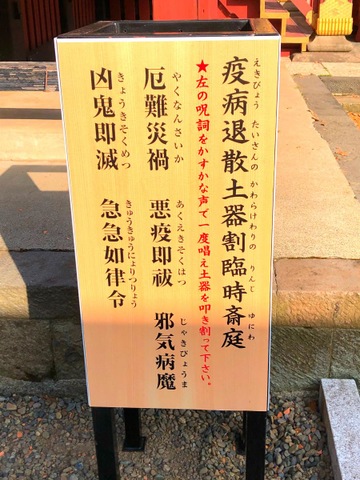 疫病退散土器割臨時斎庭
えきびょう たいさんの かわらけわりの りんじ ゆにわ
★左の呪詞をかすかな声で一度唱え土器を叩き割って下さい。
厄難災禍 悪疫即祓 邪気病魔
やくなんさいか あくえきそくはつ じゃきびょうま
凶鬼即滅 急急如律令
きょうきそくめつ きゅうきゅうにょりつりょう